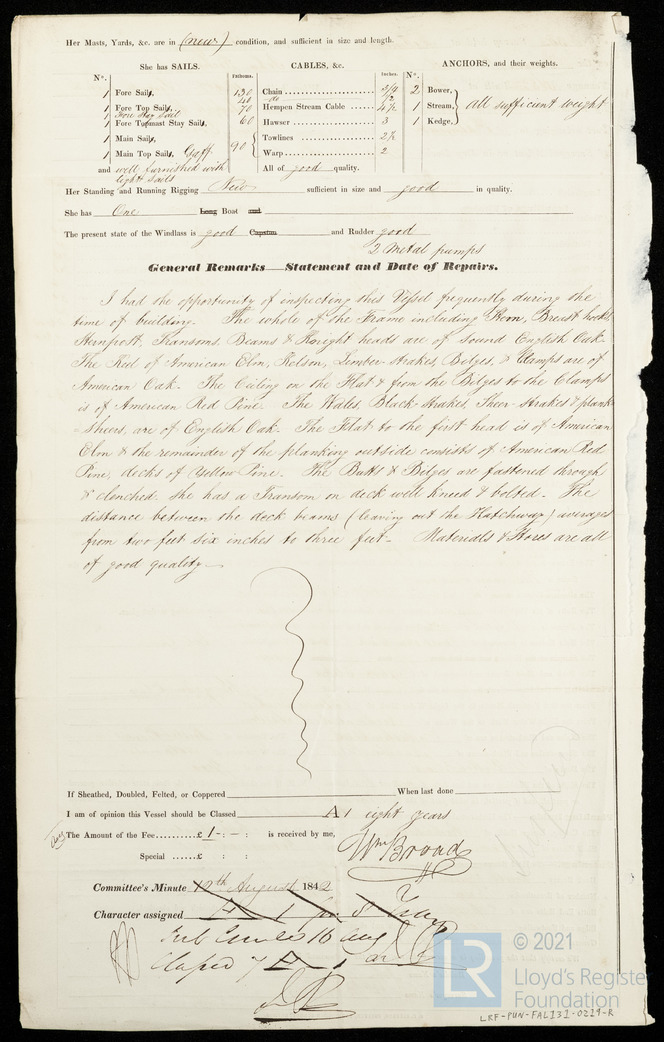 Her Masts, Yards, &c. are in (new) condition, and sufficient in size and length.
She has SAILS. CABLES, &c. ANCHORS, and their weights.
N°. Fathoms. Inches. N°.
1 Fore Sails, 130 Chain 3/4 2 Bower,
1 Fore Top Sails, 70 Hempen Stream Cable 4½ 1 Stream, All sufficient weight
1 Fore Stay Sail
1 Fore Topmast Stay Sails, 60 Hawser 3 1 Kedge,
1 Main Sails, 90 Towlines 2½
1 Main Top Sails, Gaff Warp 2
and well furnished with All of good quality.
light sails
Her Standing and Running Rigging New sufficient in size and good in quality.
She has One Long Boat and
The present state of the Windlass is good Capstan and Rudder good
2 Metal pumps
General Remarks—Statement and Date of Repairs.
I had the opportunity of inspecting this Vessel frequently during the
time of building. The whole of the Frame including Stem, Breast hooks
Sternpost, Transoms, Beams & Knight heads are of sound English Oak.
The Keel of American Elm, Kelson, Limber-strakes, Belges, & Clamps are of
American Oak. The Ceiling on the Flat & from the Belges to the Clamps
is of American Red Pine. The Wales, Black-strakes, Sheer-strakes & plank
-sheers, are of English Oak. The Flat to the first head is of American
Elm & the remainder of the planking outside consists of American Red
Pine, decks of Yellow Pine. The Butts & Belges are fastened through
& clenched. She has a Transom on deck well kneed & bolted. The
distance between the deck beams (leaving out the Hatchway) averages
from two feet six inches to three feet. Materials & Stores are all
of good quality.
If Sheathed, Doubled, Felted, or Coppered When last done
I am of opinion this Vessel should be Classed A1 eight years
The Amount of the Fee £ 1 : - : is received by me,
Special £ : :
Wm Broad
Committee's Minute 12th August 1842
Character assigned A 1 for 8 Years
16 Aug
A 1
LR
© 2021
Lloyd's Register
Foundation
LRF-PUN-FAL131-0219-R